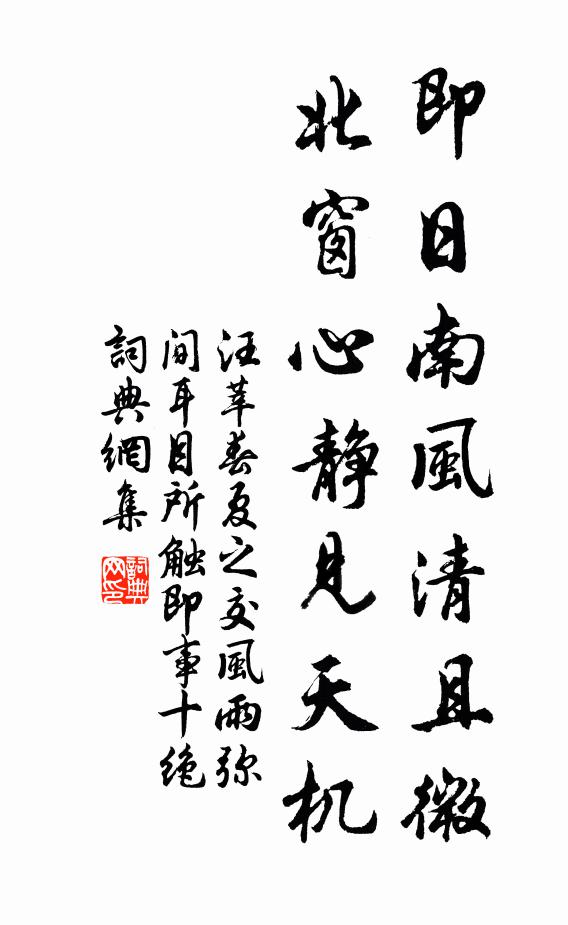 即日南風清且微
北窗心静見天机
汪莘春夏之交風雨弥
间耳目所触即事十绝
詞典網集
詞典
网印